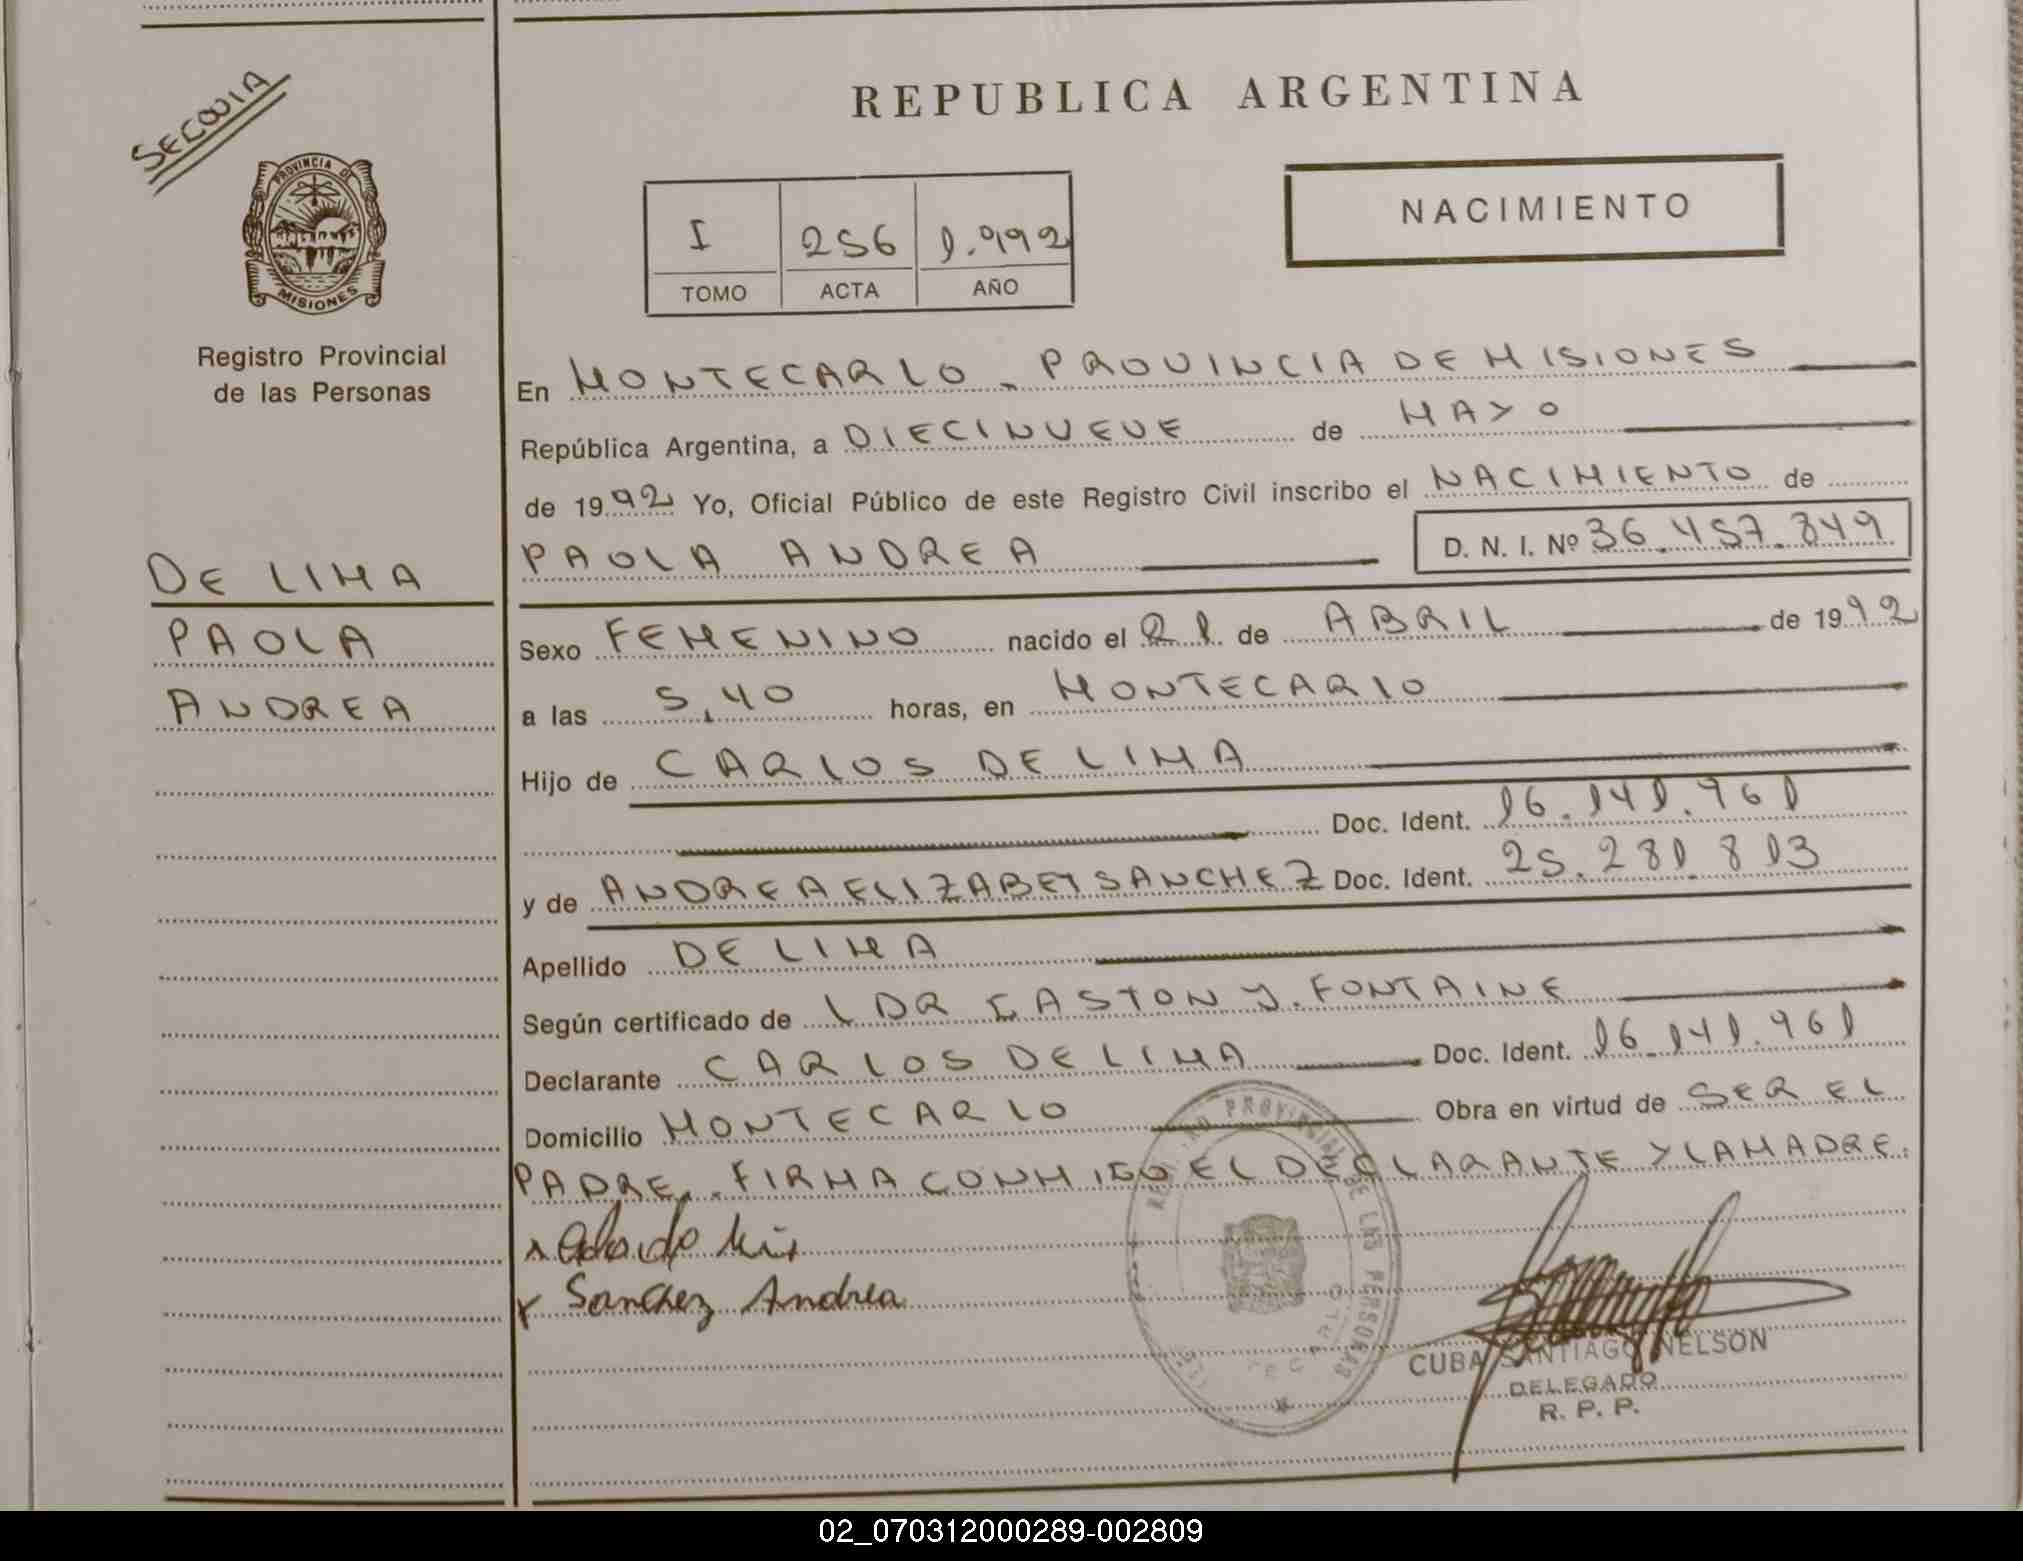 SECCION 1A
PROVINCIA DE
MISIONES
Registro Provincial
de las Personas
DE LIMA
PAOLA
ANDREA
REPUBLICA ARGENTINA
I 256 1.992
TOMO ACTA AÑO
NACIMIENTO
En MONTECARLO - PROVINCIA DE MISIONES
República Argentina, a DIECINUEVE de MAYO
de 1992 Yo, Oficial Público de este Registro Civil inscribo el NACIMIENTO de
PAOLA ANDREA D. N. I. Nº 36.457.849
Sexo FEMENINO nacido el 21 de ABRIL de 1992
a las 5,40 horas, en MONTECARLO
Hijo de CARLOS DE LIMA
Doc. Ident. 16.141.961
y de ANDREA ELIZABET SANCHEZ Doc. Ident. 25.281.813
Apellido DE LIMA
Según certificado de L DR GASTON Y. FONTAINE
Declarante CARLOS DE LIMA Doc. Ident. 16.141.961
Domicilio MONTECARLO Obra en virtud de SER EL
PADRE. FIRMA CONMIGO EL DECLARANTE Y LA MADRE.
Sanchez Andrea
REGISTRO PROVINCIAL DE LAS PERSONAS
CUBA SANTIAGO NELSON
DELEGADO
R. P. P.
02_070312000289-002809